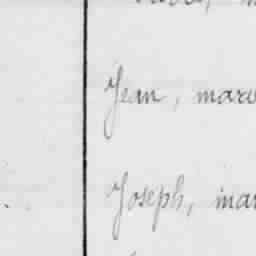 Jean, mar
Joseph, mar